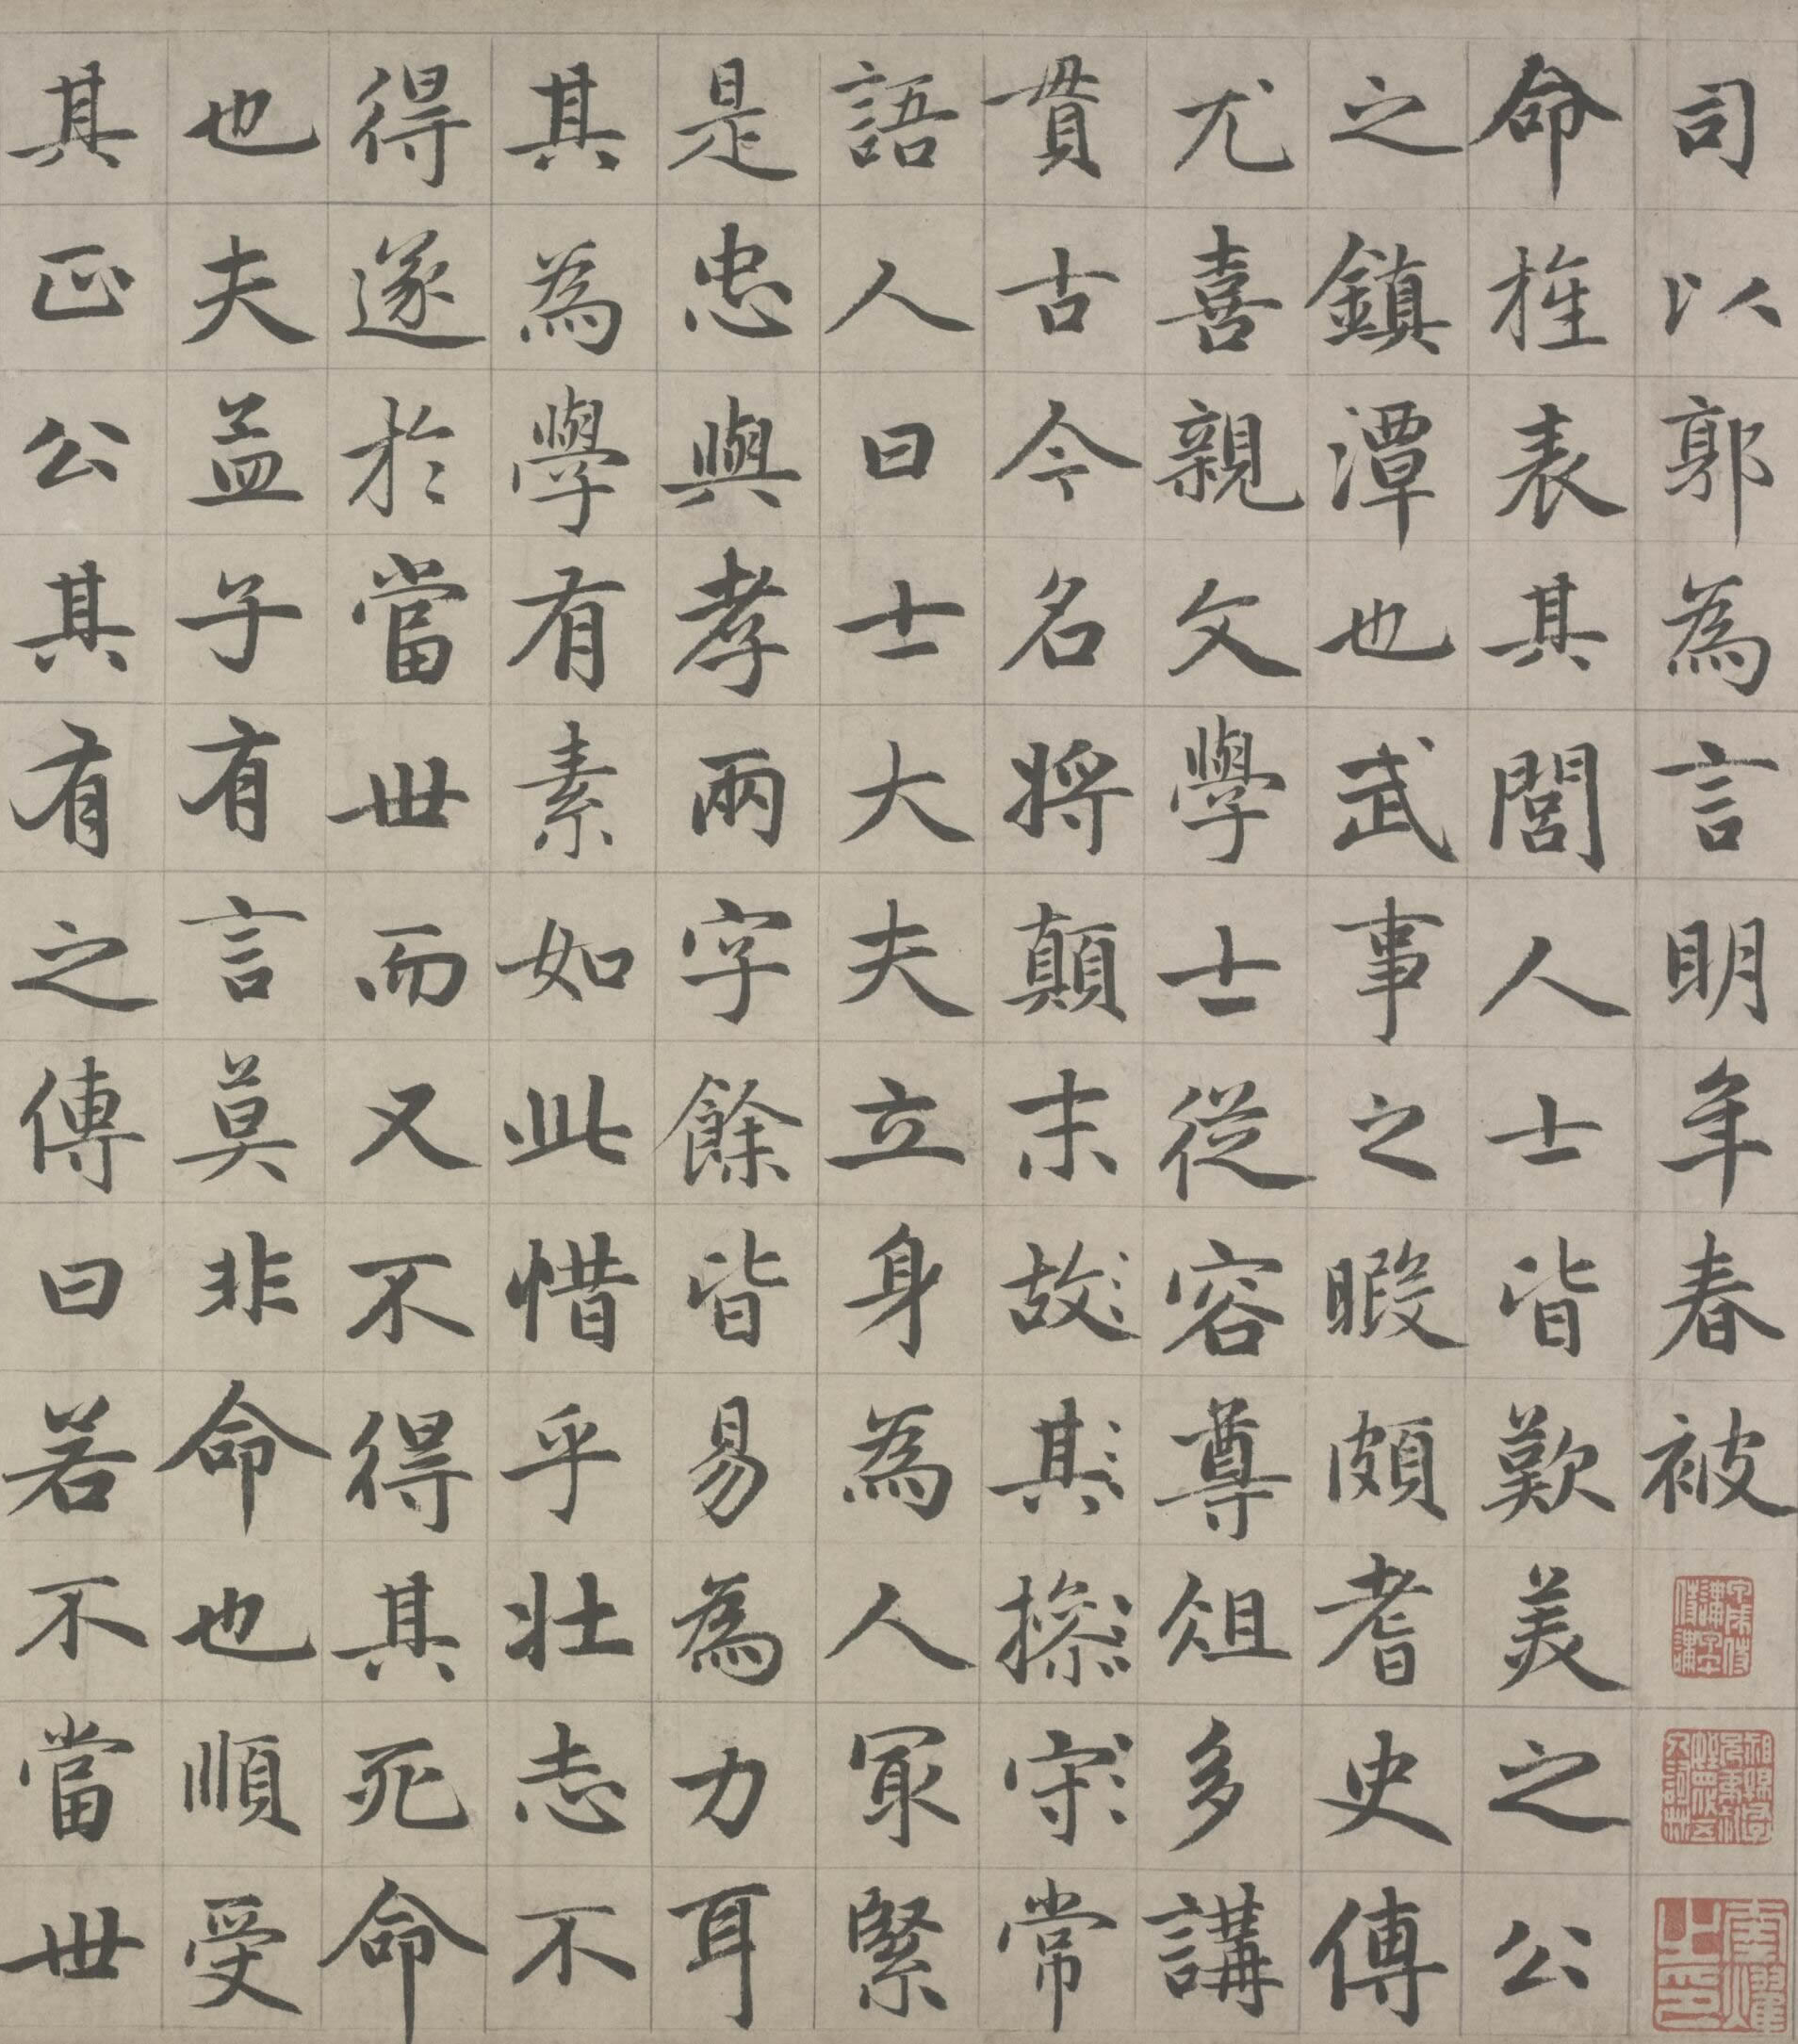 司以郭為言明年春被
命旌表其閭人士皆歎美之公
之鎮潭也武事之暇頗耆史傳
尤喜親文學士從容尊俎多講
貫古今名將顛末故其探守常
語人曰士大夫立身為人冣緊
是忠與孝兩字餘皆易為力耳
其為學有素如此惜乎壯志不
得遂於當世而又不得其死命
也夫益子有言莫非命也順受
其正公其有之傳曰若不當世